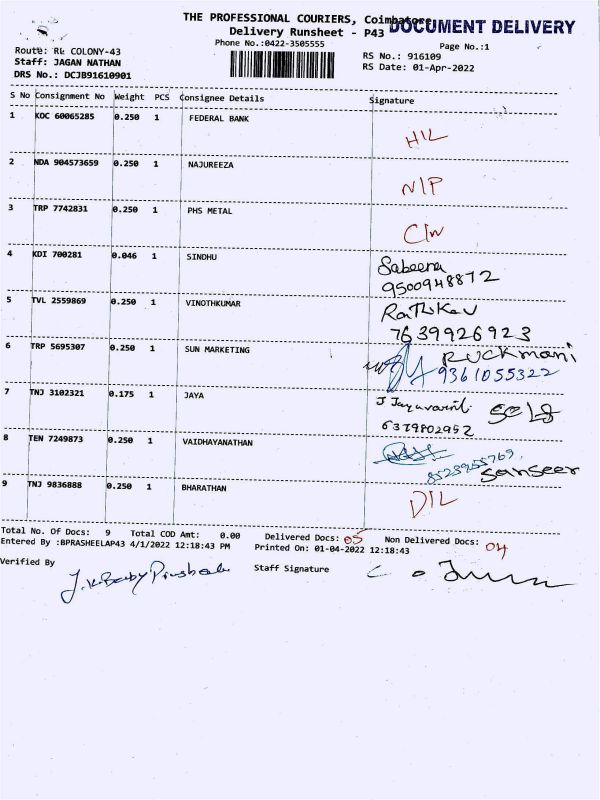 THE PROFESSIONAL COURIERS, Coimbatore
DOCUMENT DELIVERY
Delivery Runsheet - P43
Phone No.:0422-3505555
Page No.:1
Route: RL COLONY-43
RS No.: 916109
Staff: JAGAN NATHAN
RS Date: 01-Apr-2022
DRS No.: DCJB91610901
S No Consignment No Weight PCS Consignee Details Signature
1 KOC 60065285 0.250 1 FEDERAL BANK
H/L
2 NDA 904573659 0.250 1 NAJUREEZA
N/P
3 TRP 7742831 0.250 1 PHS METAL
4 KDI 700281 0.046 1 SINDHU
Sabeena
9500948872
5 TVL 2559869 0.250 1 VINOTHKUMAR
7639926923
6 TRP 5695307 0.250 1 SUN MARKETING
RUCKMANI
9361055322
7 TNJ 3102321 0.175 1 JAYA
6379802952
8 TEN 7249873 0.250 1 VAIDHYANATHAN
9 TNJ 9836888 0.250 1 BHARATHAN
D/L
Total No. Of Docs: 9 Total COD Amt: 0.00 Delivered Docs: 05 Non Delivered Docs: 04
Entered By :BPRASHEELAP43 4/1/2022 12:18:43 PM Printed On: 01-04-2022 12:18:43
Verified By Staff Signature